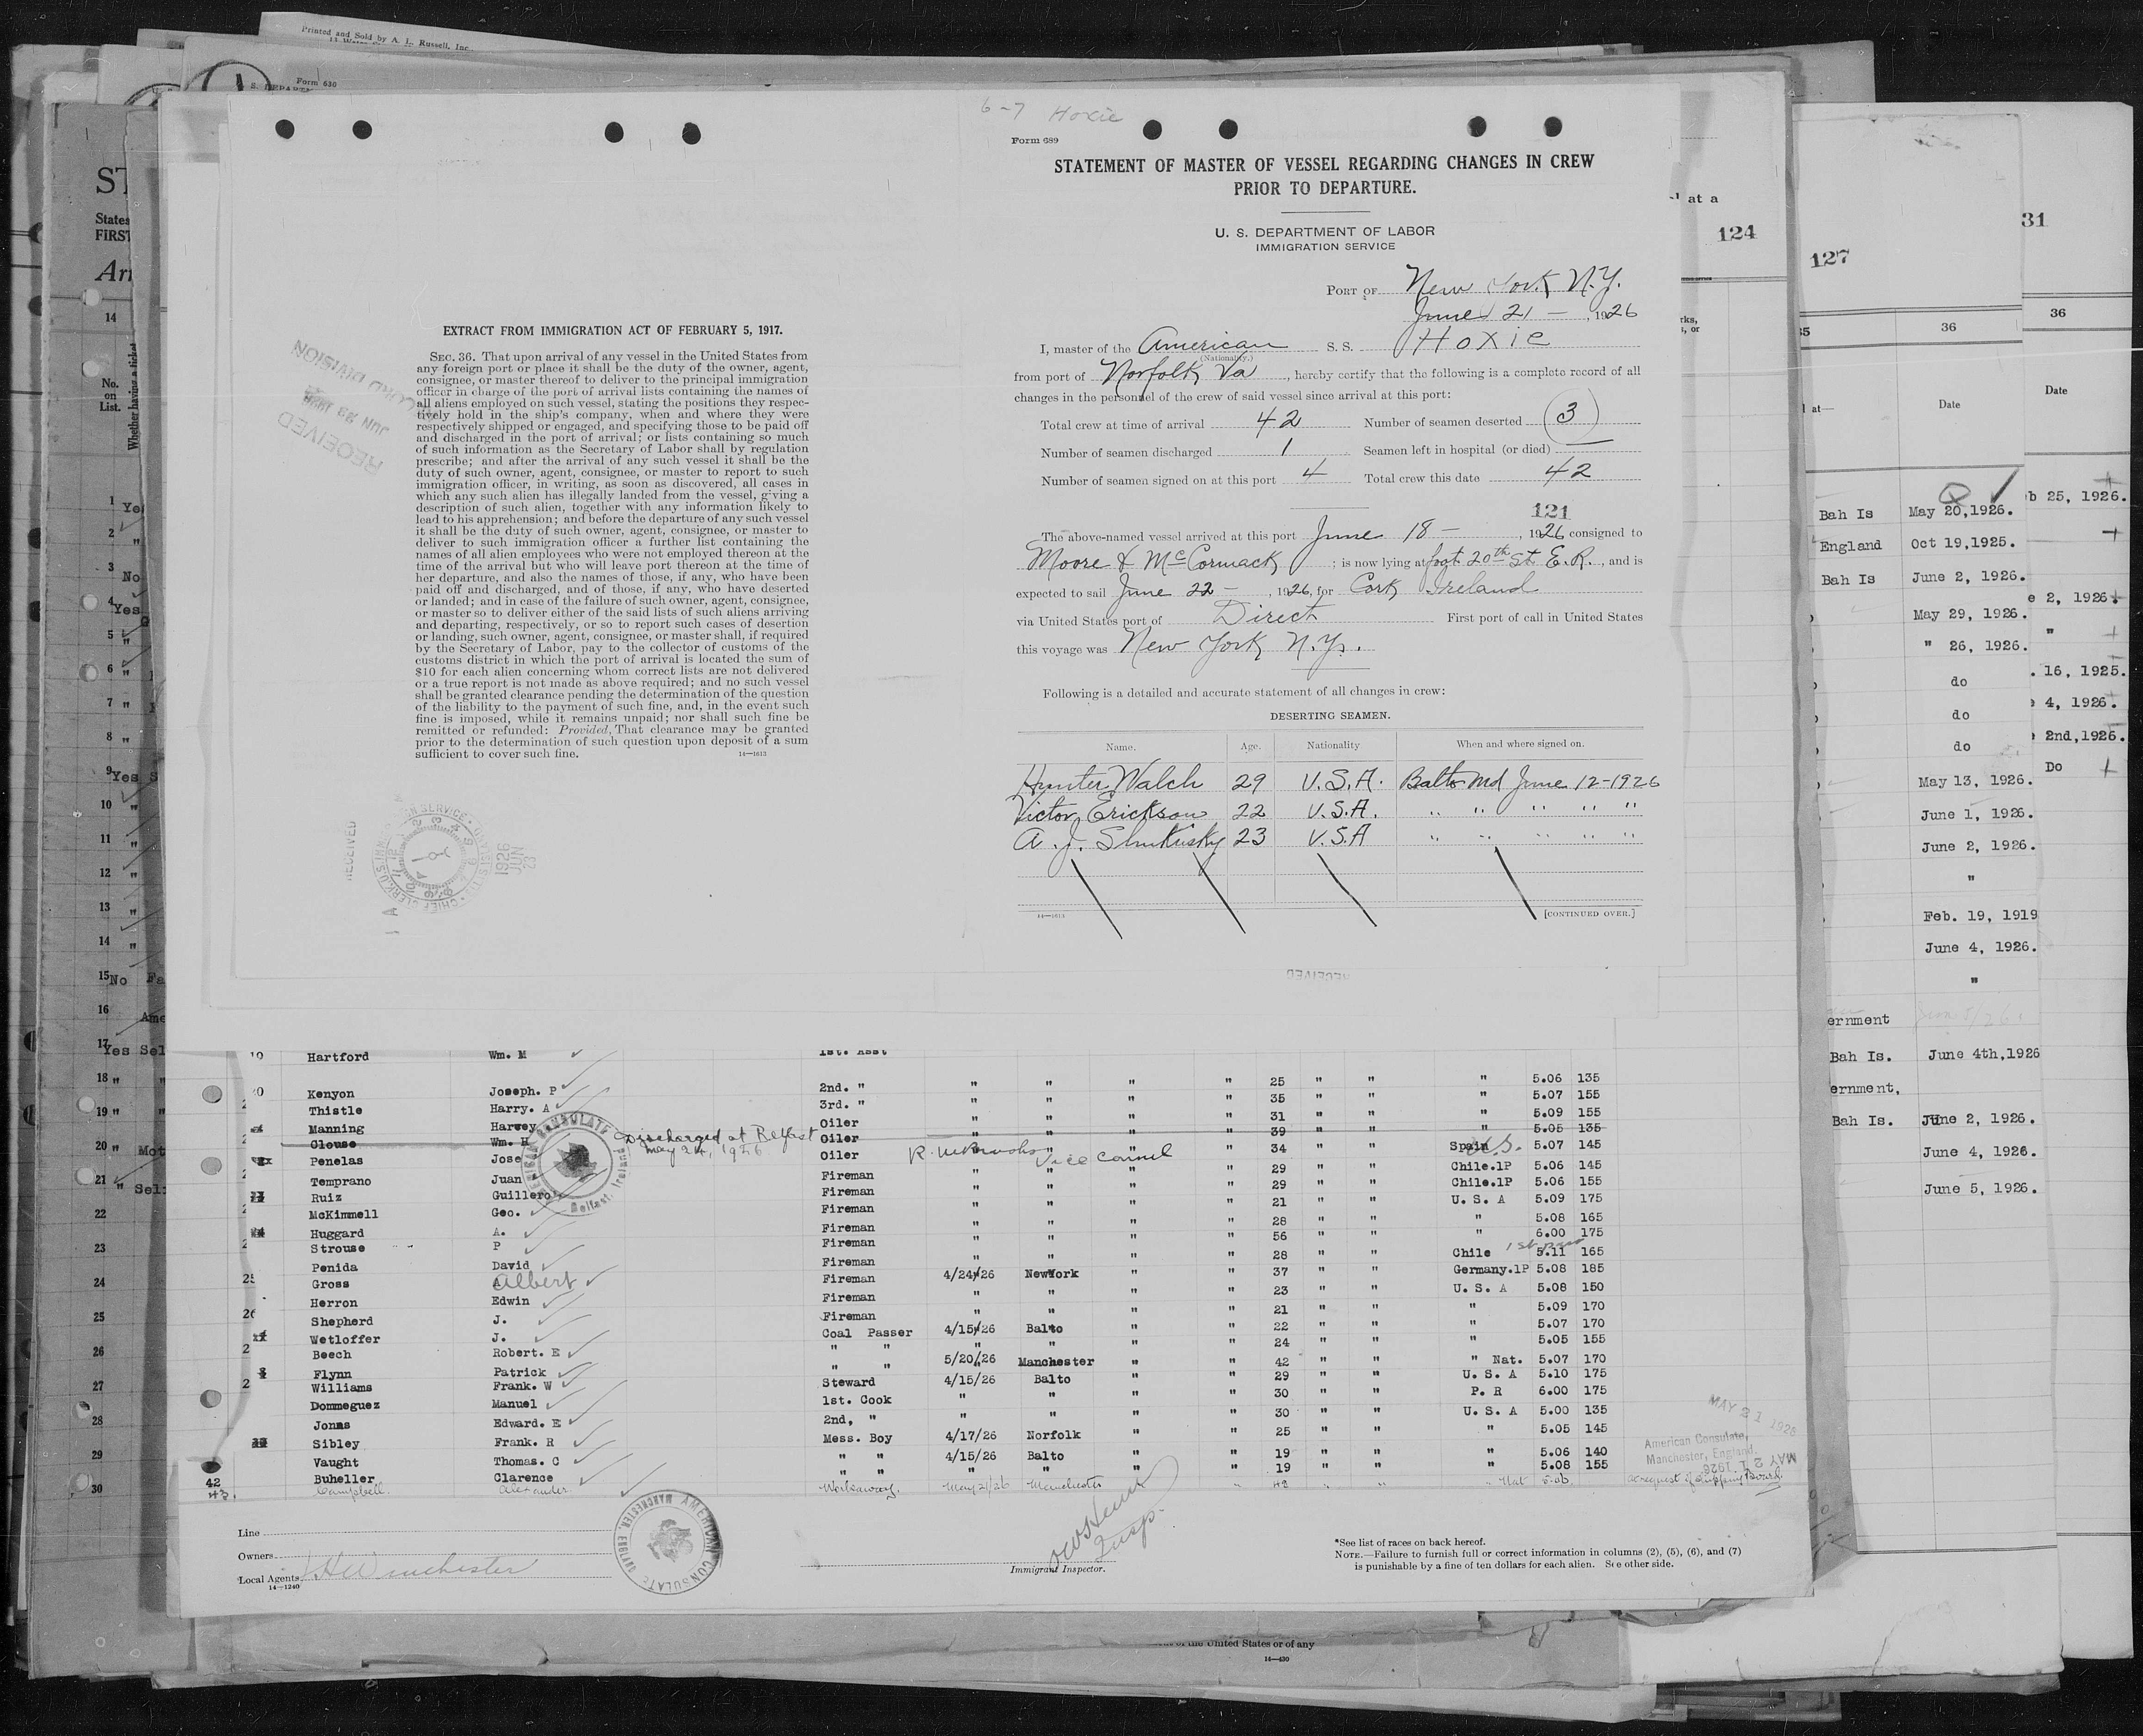 Printed and Sold by A. L. Russell, Inc.
Form 630
6-7 Hoxie
Form 689
STATEMENT OF MASTER OF VESSEL REGARDING CHANGES IN CREW
PRIOR TO DEPARTURE.
U. S. DEPARTMENT OF LABOR
IMMIGRATION SERVICE
PORT OF New York N.Y.
June 21 - , 1926
I, master of the American S. S. Hoxie
(Nationality.)
from port of Norfolk Va , hereby certify that the following is a complete record of all
changes in the personnel of the crew of said vessel since arrival at this port:
Total crew at time of arrival 42 Number of seamen deserted 3
Number of seamen discharged 1 Seamen left in hospital (or died)
Number of seamen signed on at this port 4 Total crew this date 42
121
The above-named vessel arrived at this port June 18 - , 1926 consigned to
Moore & McCormack ; is now lying at foot 20th St. E. R. , and is
expected to sail June 22 - , 1926, for Cork Ireland
via United States port of Direct First port of call in United States
this voyage was New York N.Y.
Following is a detailed and accurate statement of all changes in crew:
DESERTING SEAMEN.
Name. Age. Nationality When and where signed on.
Hunter Walch 29 U.S.A. Balto Md June 12-1926
Victor Erickson 22 U.S.A. " " " " "
A. J. 23 U.S.A " " " " "
14—1613 [CONTINUED OVER.]
EXTRACT FROM IMMIGRATION ACT OF FEBRUARY 5, 1917.
SEC. 36. That upon arrival of any vessel in the United States from
any foreign port or place it shall be the duty of the owner, agent,
consignee, or master thereof to deliver to the principal immigration
officer in charge of the port of arrival lists containing the names of
all aliens employed on such vessel, stating the positions they respec-
tively hold in the ship's company, when and where they were
respectively shipped or engaged, and specifying those to be paid off
and discharged in the port of arrival; or lists containing so much
of such information as the Secretary of Labor shall by regulation
prescribe; and after the arrival of any such vessel it shall be the
duty of such owner, agent, consignee, or master to report to such
immigration officer, in writing, as soon as discovered, all cases in
which any such alien has illegally landed from the vessel, giving a
description of such alien, together with any information likely to
lead to his apprehension; and before the departure of any such vessel
it shall be the duty of such owner, agent, consignee, or master to
deliver to such immigration officer a further list containing the
names of all alien employees who were not employed thereon at the
time of the arrival but who will leave port thereon at the time of
her departure, and also the names of those, if any, who have been
paid off and discharged, and of those, if any, who have deserted
or landed; and in case of the failure of such owner, agent, consignee,
or master so to deliver either of the said lists of such aliens arriving
and departing, respectively, or so to report such cases of desertion
or landing, such owner, agent, consignee, or master shall, if required
by the Secretary of Labor, pay to the collector of customs of the
customs district in which the port of arrival is located the sum of
$10 for each alien concerning whom correct lists are not delivered
or a true report is not made as above required; and no such vessel
shall be granted clearance pending the determination of the question
of the liability to the payment of such fine, and, in the event such
fine is imposed, while it remains unpaid; nor shall such fine be
remitted or refunded: Provided, That clearance may be granted
prior to the determination of such question upon deposit of a sum
sufficient to cover such fine. 14—1613
RECEIVED
1926 JUN 23
Hartford Wm. M 1st. Asst
Kenyon Joseph. P 2nd. " " " " " 25 " " " 5.06 135
Thistle Harry. A 3rd. " " " " " 35 " " " 5.07 155
Manning Harvey Oiler " " " " 31 " " " 5.09 155
Clouse Wm. H Oiler " " " " 39 " 5.05 135
Discharged at Belfast May 24, 1926
Penelas Jose Oiler " " " 34 " " Spain 5.07 145
Vice Consul
Temprano Juan Fireman " " " " 29 " " Chile.1P 5.06 145
Ruiz Guillero Fireman " " " " 29 " " Chile.1P 5.06 155
McKimmell Geo. Fireman " " " " 21 " " U. S. A 5.09 175
Huggard A. Fireman " " " " 28 " " " 5.08 165
Strouse P Fireman " " " " 56 " " " 6.00 175
Penida David Fireman " " " " 28 " " Chile 5.11 165
Gross Albert Fireman 4/24/26 NewYork " " 37 " " Germany.1P 5.08 185
Herron Edwin Fireman " " " " 23 " " U. S. A 5.08 150
Shepherd J. Fireman " " " " 21 " " " 5.09 170
Wetloffer J. Coal Passer 4/15/26 Balto " " 22 " " " 5.07 170
Beech Robert. E " " " " " " 24 " " " 5.05 155
Flynn Patrick " " 5/20/26 Manchester " " 42 " " " Nat. 5.07 170
Williams Frank. W Steward 4/15/26 Balto " " 29 " " U. S. A 5.10 175
Dommeguez Manuel 1st. Cook " " " " 30 " " P. R 6.00 175
Jonas Edward. E 2nd, " " " " " 30 " " U. S. A 5.00 135
Sibley Frank. R Mess. Boy 4/17/26 Norfolk " " 25 " " " 5.05 145
Vaught Thomas. C " " 4/15/26 Balto " " 19 " " " 5.06 140
42 Buheller Clarence " " " " " " 19 " " " 5.08 155
43. Campbell Alexander Workaway. May 21/26 Manchester " 42 " " " Nat 5.06 at request of Shipping Board.
MAY 21 1926
American Consulate,
Manchester, England.
MAY 21 1926
AMERICAN CONSULATE Belfast, Ireland
AMERICAN CONSULATE MANCHESTER, ENGLAND
Line
Owners
Local Agents Winchester
14—1240
Insp.
Immigrant Inspector.
*See list of races on back hereof.
NOTE.—Failure to furnish full or correct information in columns (2), (5), (6), and (7)
is punishable by a fine of ten dollars for each alien. See other side.
of the United States or of any
14—430
States
FIRST
14
No.
on
List.
Whether having a ticket
1 Yes
2 "
3 No
4 Yes
5 "
6 "
7 "
8 "
9 Yes
10 "
11 "
12 "
13 "
14 "
15 No
16
17 Yes Sel
18 "
19 " "
20 " Mot
21 " Sel
22
23
24
25
26
27
28
29
30
at a
124
127
31
36
36
Date
Date
Bah Is May 20,1926.
England Oct 19,1925.
Bah Is June 2, 1926.
May 29, 1926.
" 26, 1926.
do
do
do
May 13, 1926.
June 1, 1926.
June 2, 1926.
"
Feb. 19, 1919
June 4, 1926.
"
ernment
Bah Is. June 4th,1926
ernment,
Bah Is. June 2, 1926.
June 4, 1926.
June 5, 1926.
b 25, 1926.
e 2, 1926.
"
. 16, 1925.
4, 1926.
2nd,1926.
Do